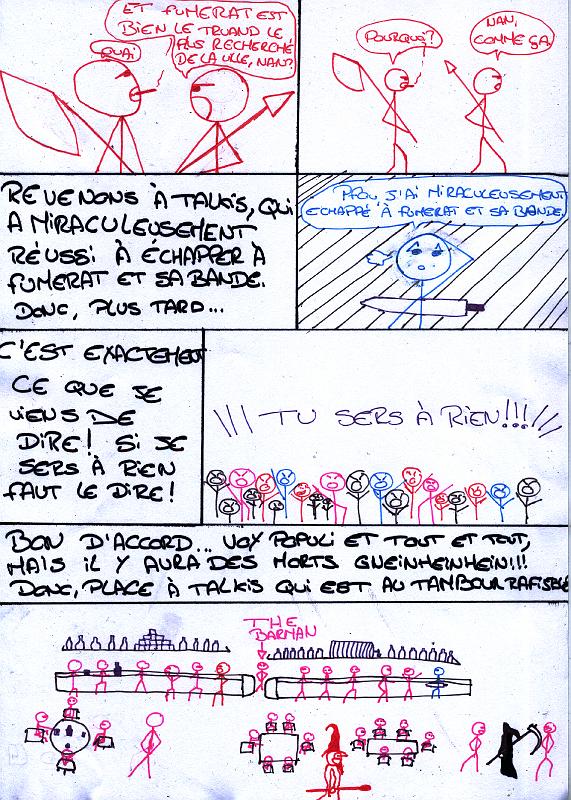 ET FUMERAT EST
BIEN LE TRUAND LE
PLUS RECHERCHÉ
DE LA VILLE, NAN?
OUAI
POURQUOI?
NAN,
COMME ÇA.
REVENONS À TALKIS, QUI
A MIRACULEUSEMENT
RÉUSSI À ÉCHAPPER À
FUMERAT ET SA BANDE.
DONC, PLUS TARD...
PFOU, J'AI MIRACULEUSEMENT
ECHAPPÉ À FUMERAT ET SA BANDE.
C'EST EXACTEMENT
CE QUE JE
VIENS DE
DIRE! SI JE
SERS À RIEN
FAUT LE DIRE!
TU SERS À RIEN!!!
BON D'ACCORD... VOX POPULI ET TOUT ET TOUT,
MAIS IL Y AURA DES MORTS GNEINHEINHEIN!!!
DONC, PLACE À TALKIS QUI EST AU TAMBOUR
THE
BARMAN